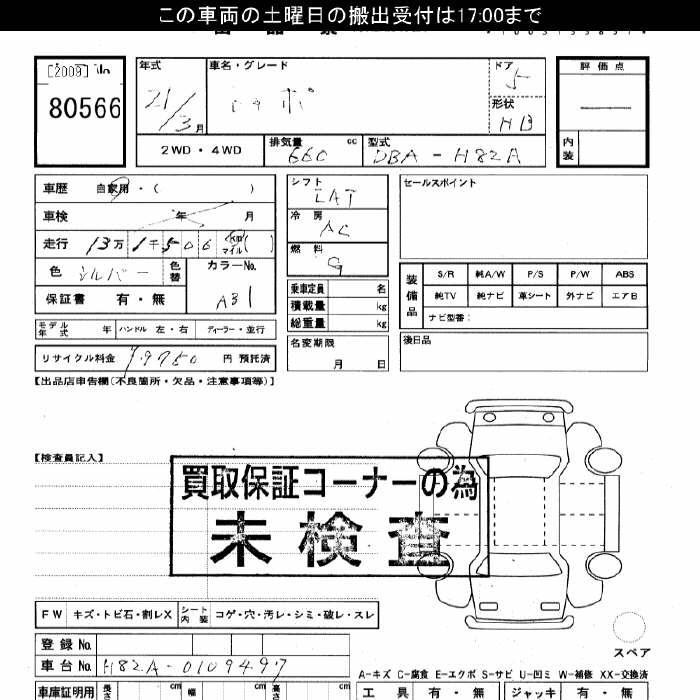 この車両の土曜日の搬出受付は17:00まで
[2009]
80566
年式
21/3月
車名・グレード
トッポ
ドア
5
形状
HB
評価点
内装
2WD・4WD
排気量 660 cc
型式 DBA-H82A
車歴 自家用・( )
車検 年 月
走行 13万1千506 km マイル( )
色 シルバー 色替
カラーNo. A31
保証書 有・無
シフト
LAT
冷房
AC
燃料
G
乗車定員 名
積載量 kg
総重量 kg
名変期限
月 日
セールスポイント
装備品
S/R 純A/W P/S P/W ABS
純TV 純ナビ 革シート 外ナビ エアB
ナビ型番:
後日品
モデル年式 年 ハンドル 左・右 ディーラー・並行
リサイクル料金 円 預託済
【出品店申告欄(不良箇所・欠品・注意事項等)】
【検査員記入】
買取保証コーナーの為
未検査
FW キズ・トビ石・割レX シート内装 コゲ・穴・汚レ・シミ・破レ・スレ
スペア
登録No.
車台No. H82A-0109497
A-キズ C-腐食 E-エクボ S-サビ U-凹ミ W-補修 XX-交換済
車庫証明用 長さ cm 幅 cm 高さ cm
工具 有・無 ジャッキ 有・無